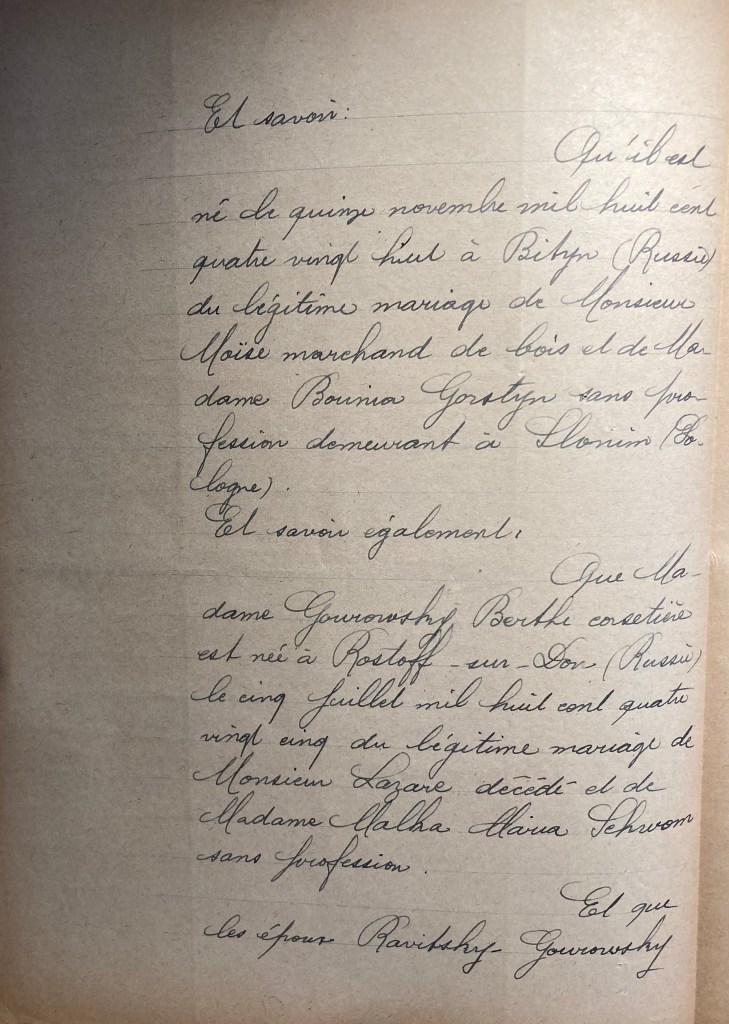 Et savoir:
Qu'il est
né le quinze novembre mil huit cent
quatre vingt huit à Bityn (Russie)
du légitime mariage de Monsieur
Moïse marchand de bois et de Ma-
dame Bounia Gorstyn sans pro-
fession demeurant à Slonim (Po-
logne).
Et savoir également,
Que Ma-
dame Gourowsky Berthe corsetière
est née à Rostoff-sur-Don (Russie)
le cinq Juillet mil huit cent quatre
vingt cinq du légitime mariage de
Monsieur Lazare décédé et de
Madame Malka Maria Schwom
sans profession.
Et que
les époux Ravitsky-Gourowsky